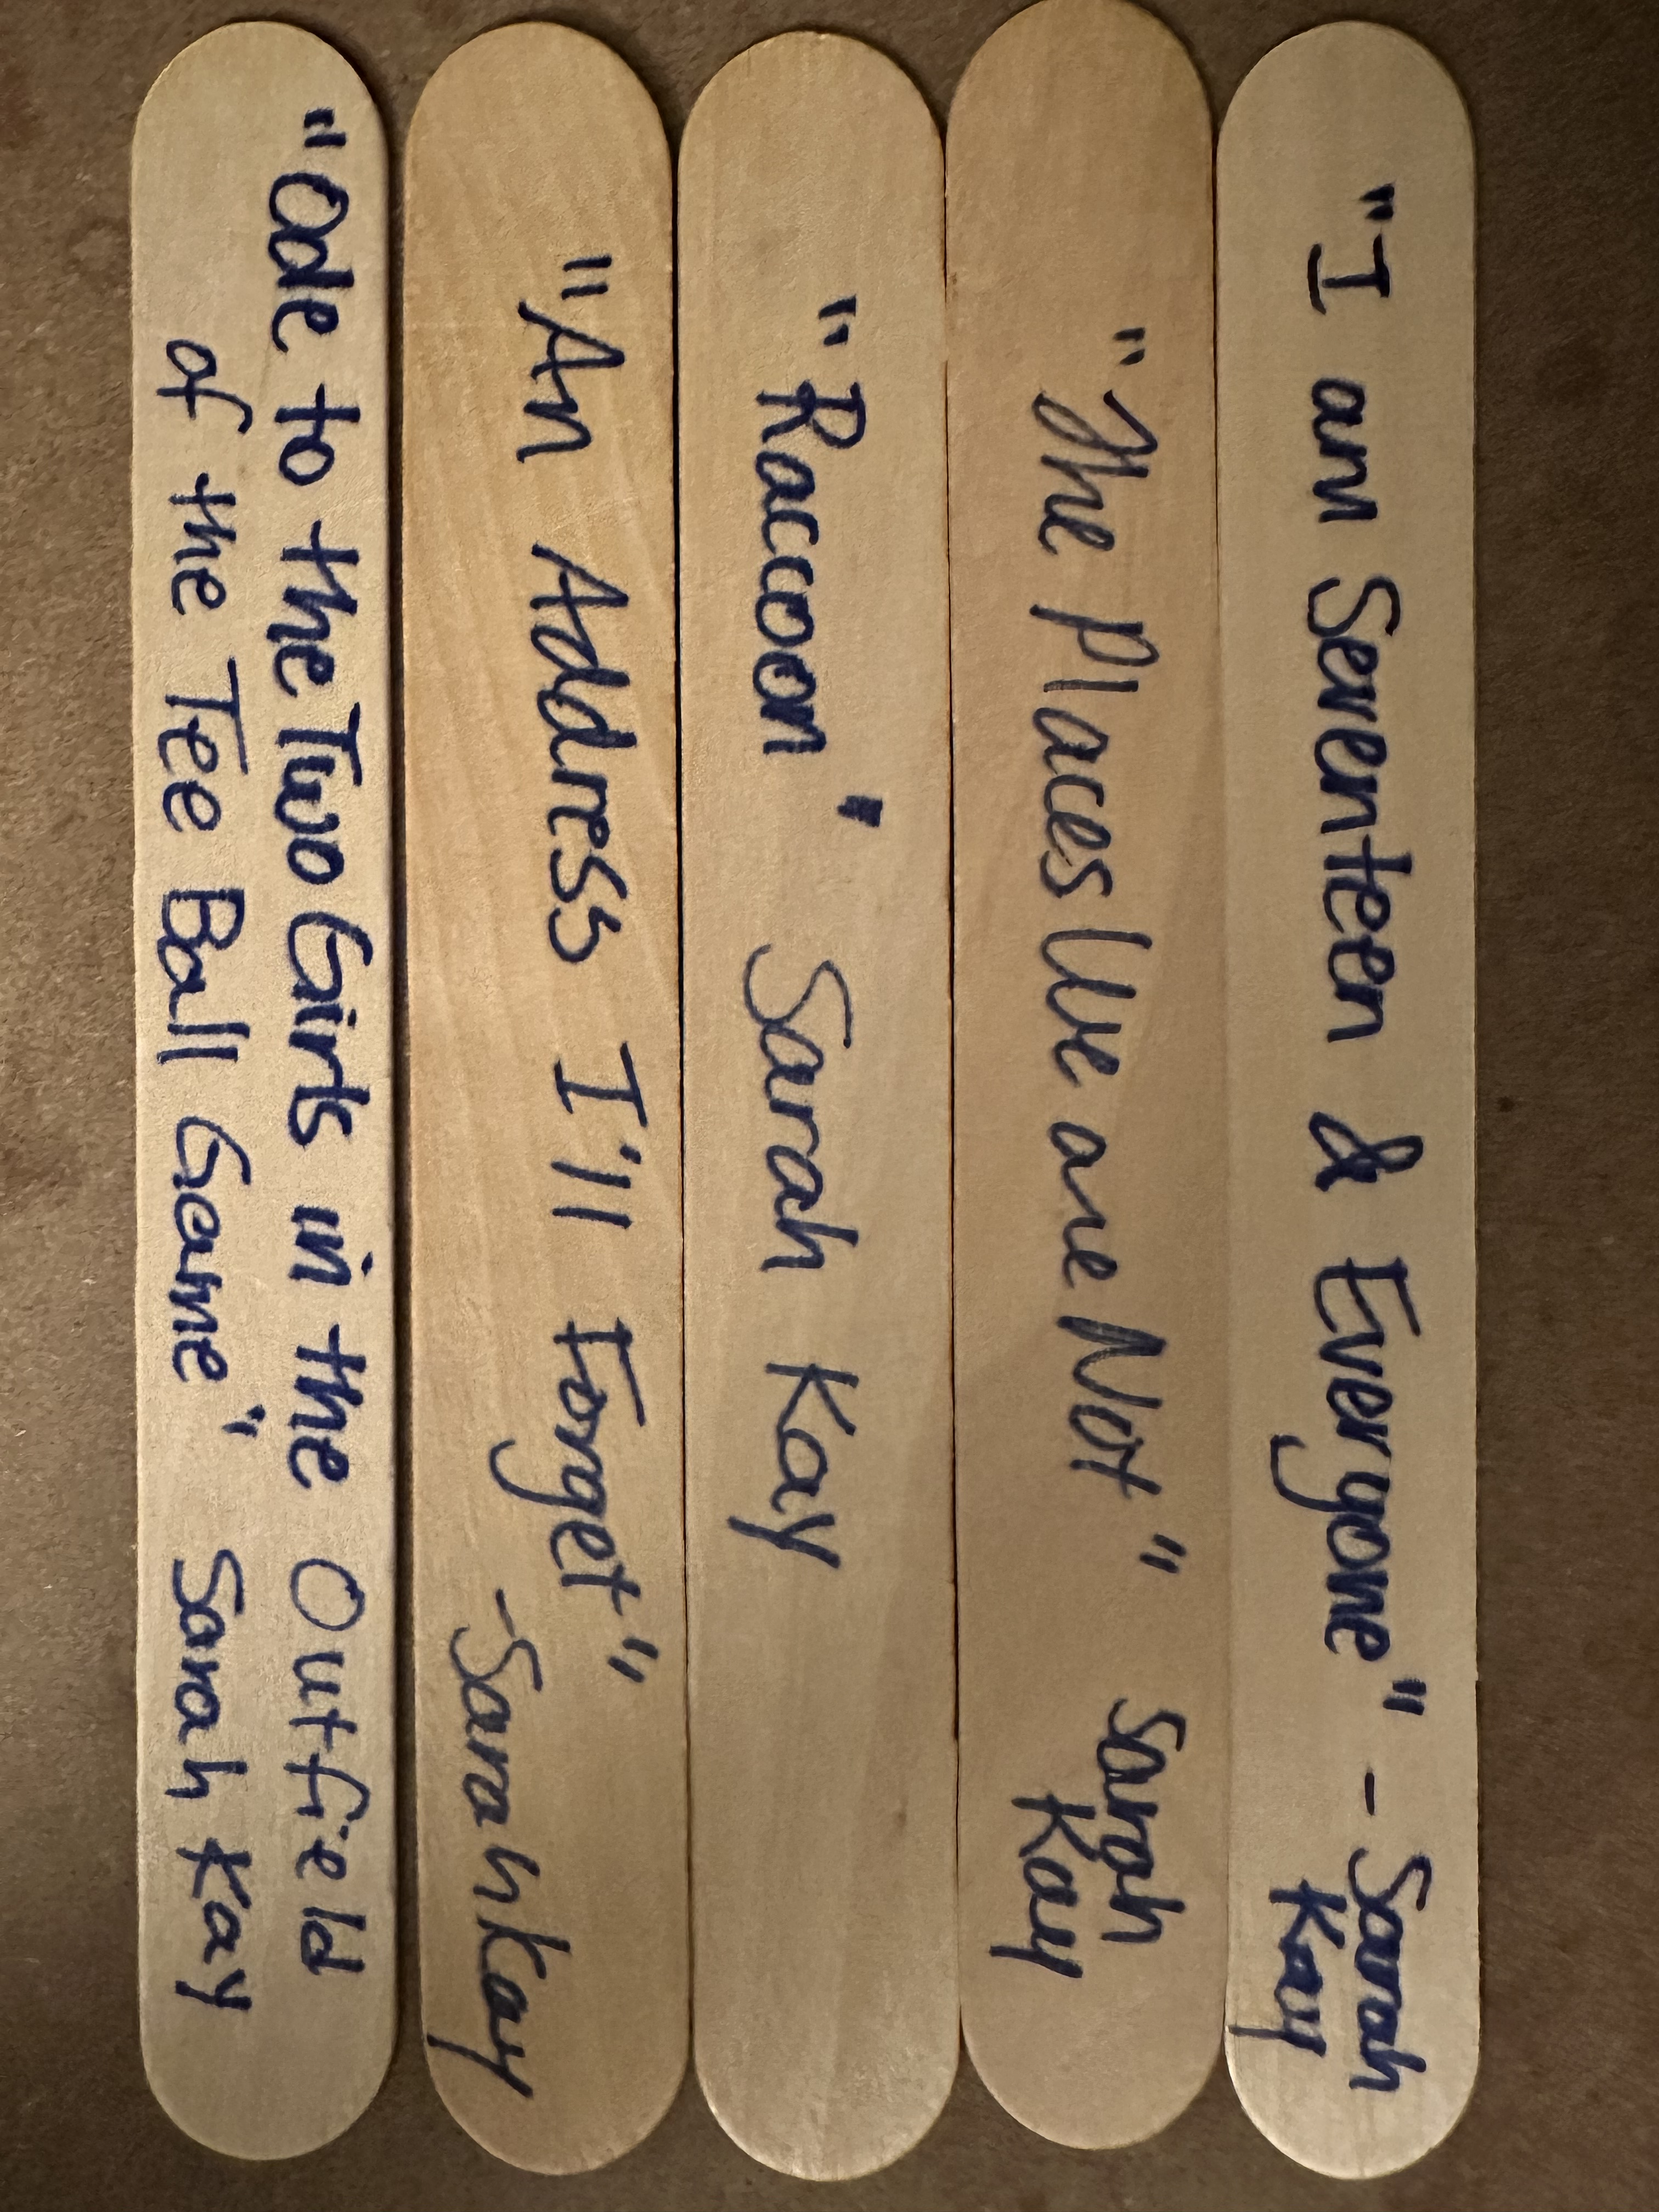 "I am Seventeen & Everyone" - Sarah
Kay
"The Places We are Not" Sarah
Kay
"Raccoon" Sarah Kay
"An Address I'll Forget"
-Sarah Kay
"Ode to the Two Girls in the Outfield
of the Tee Ball Game" Sarah Kay